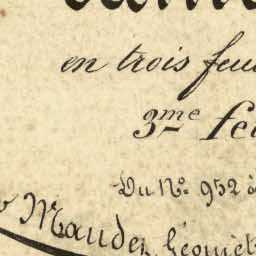 en trois feu
3me fe
Du No. 952 à
Maudez, Géomèt